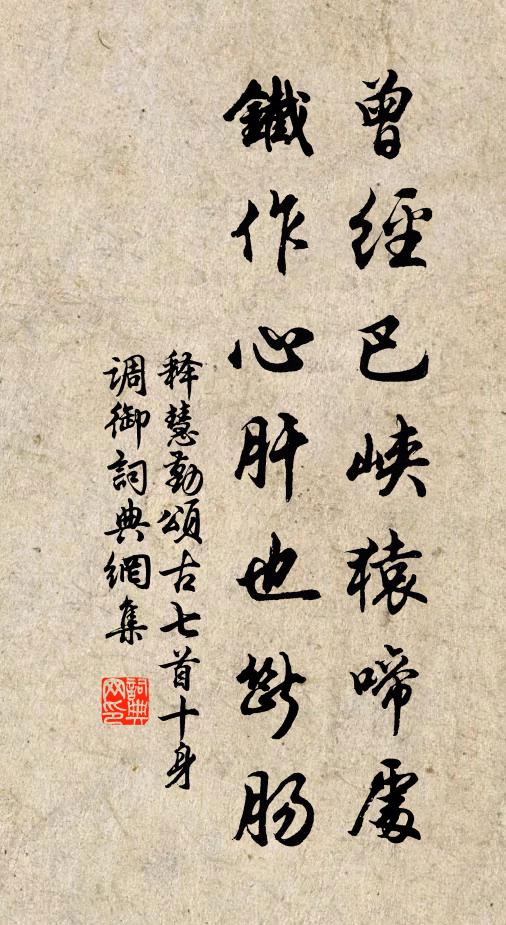 曾經巴峽猿啼處
鐵作心肝也斷腸
释慧勤頌古七首十身
调御詞典網集
詞典
网印